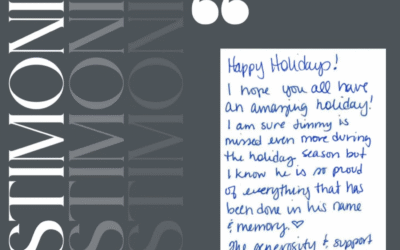 STIMONI
STIMONI
STIMONI
“
Happy Holidays!
I hope you all have
an amazing holiday!
I am sure Jimmy is
missed even more during
the holiday season but
I know he is so proud
of everything that has
been done in his name
& memory.♡
The generosity & support